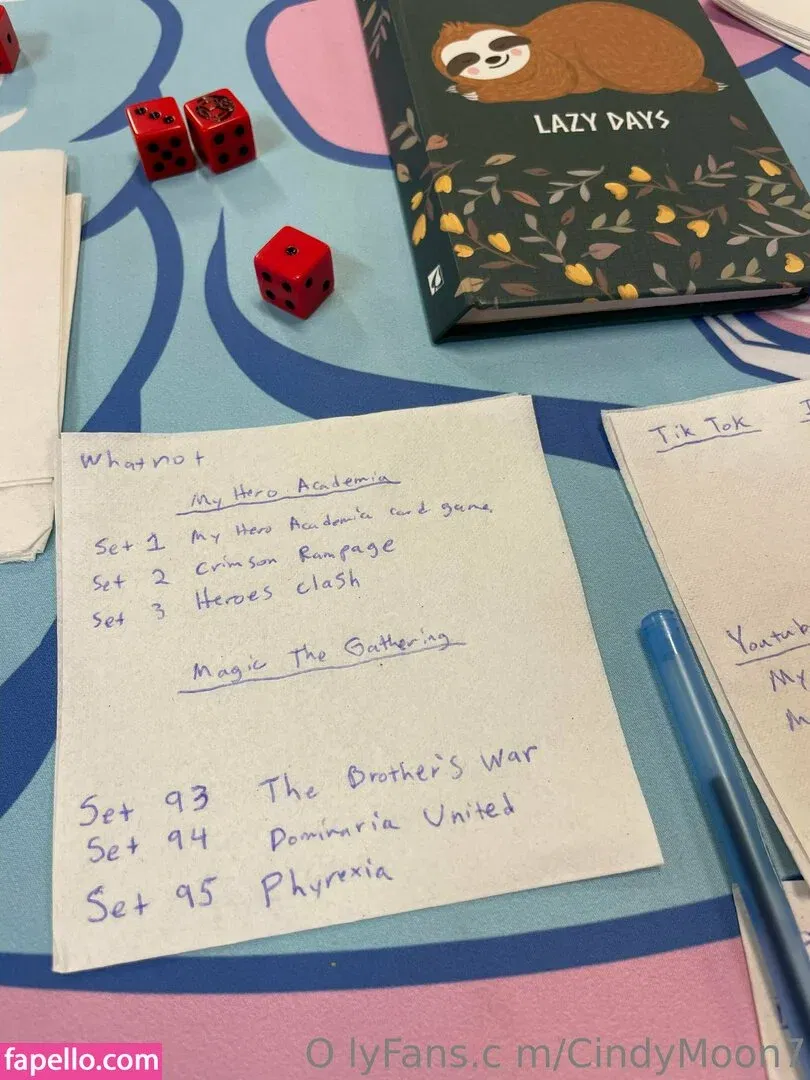 LAZY DAYS
Whatnot
My Hero Academia
Set 1 My Hero Academia card game
Set 2 Crimson Rampage
Set 3 Heroes clash
Magic The Gathering
Set 93 The Brother's War
Set 94 Dominaria United
Set 95 Phyrexia
Tik Tok
My
fapello.com
O lyFans.c m/CindyMoon7